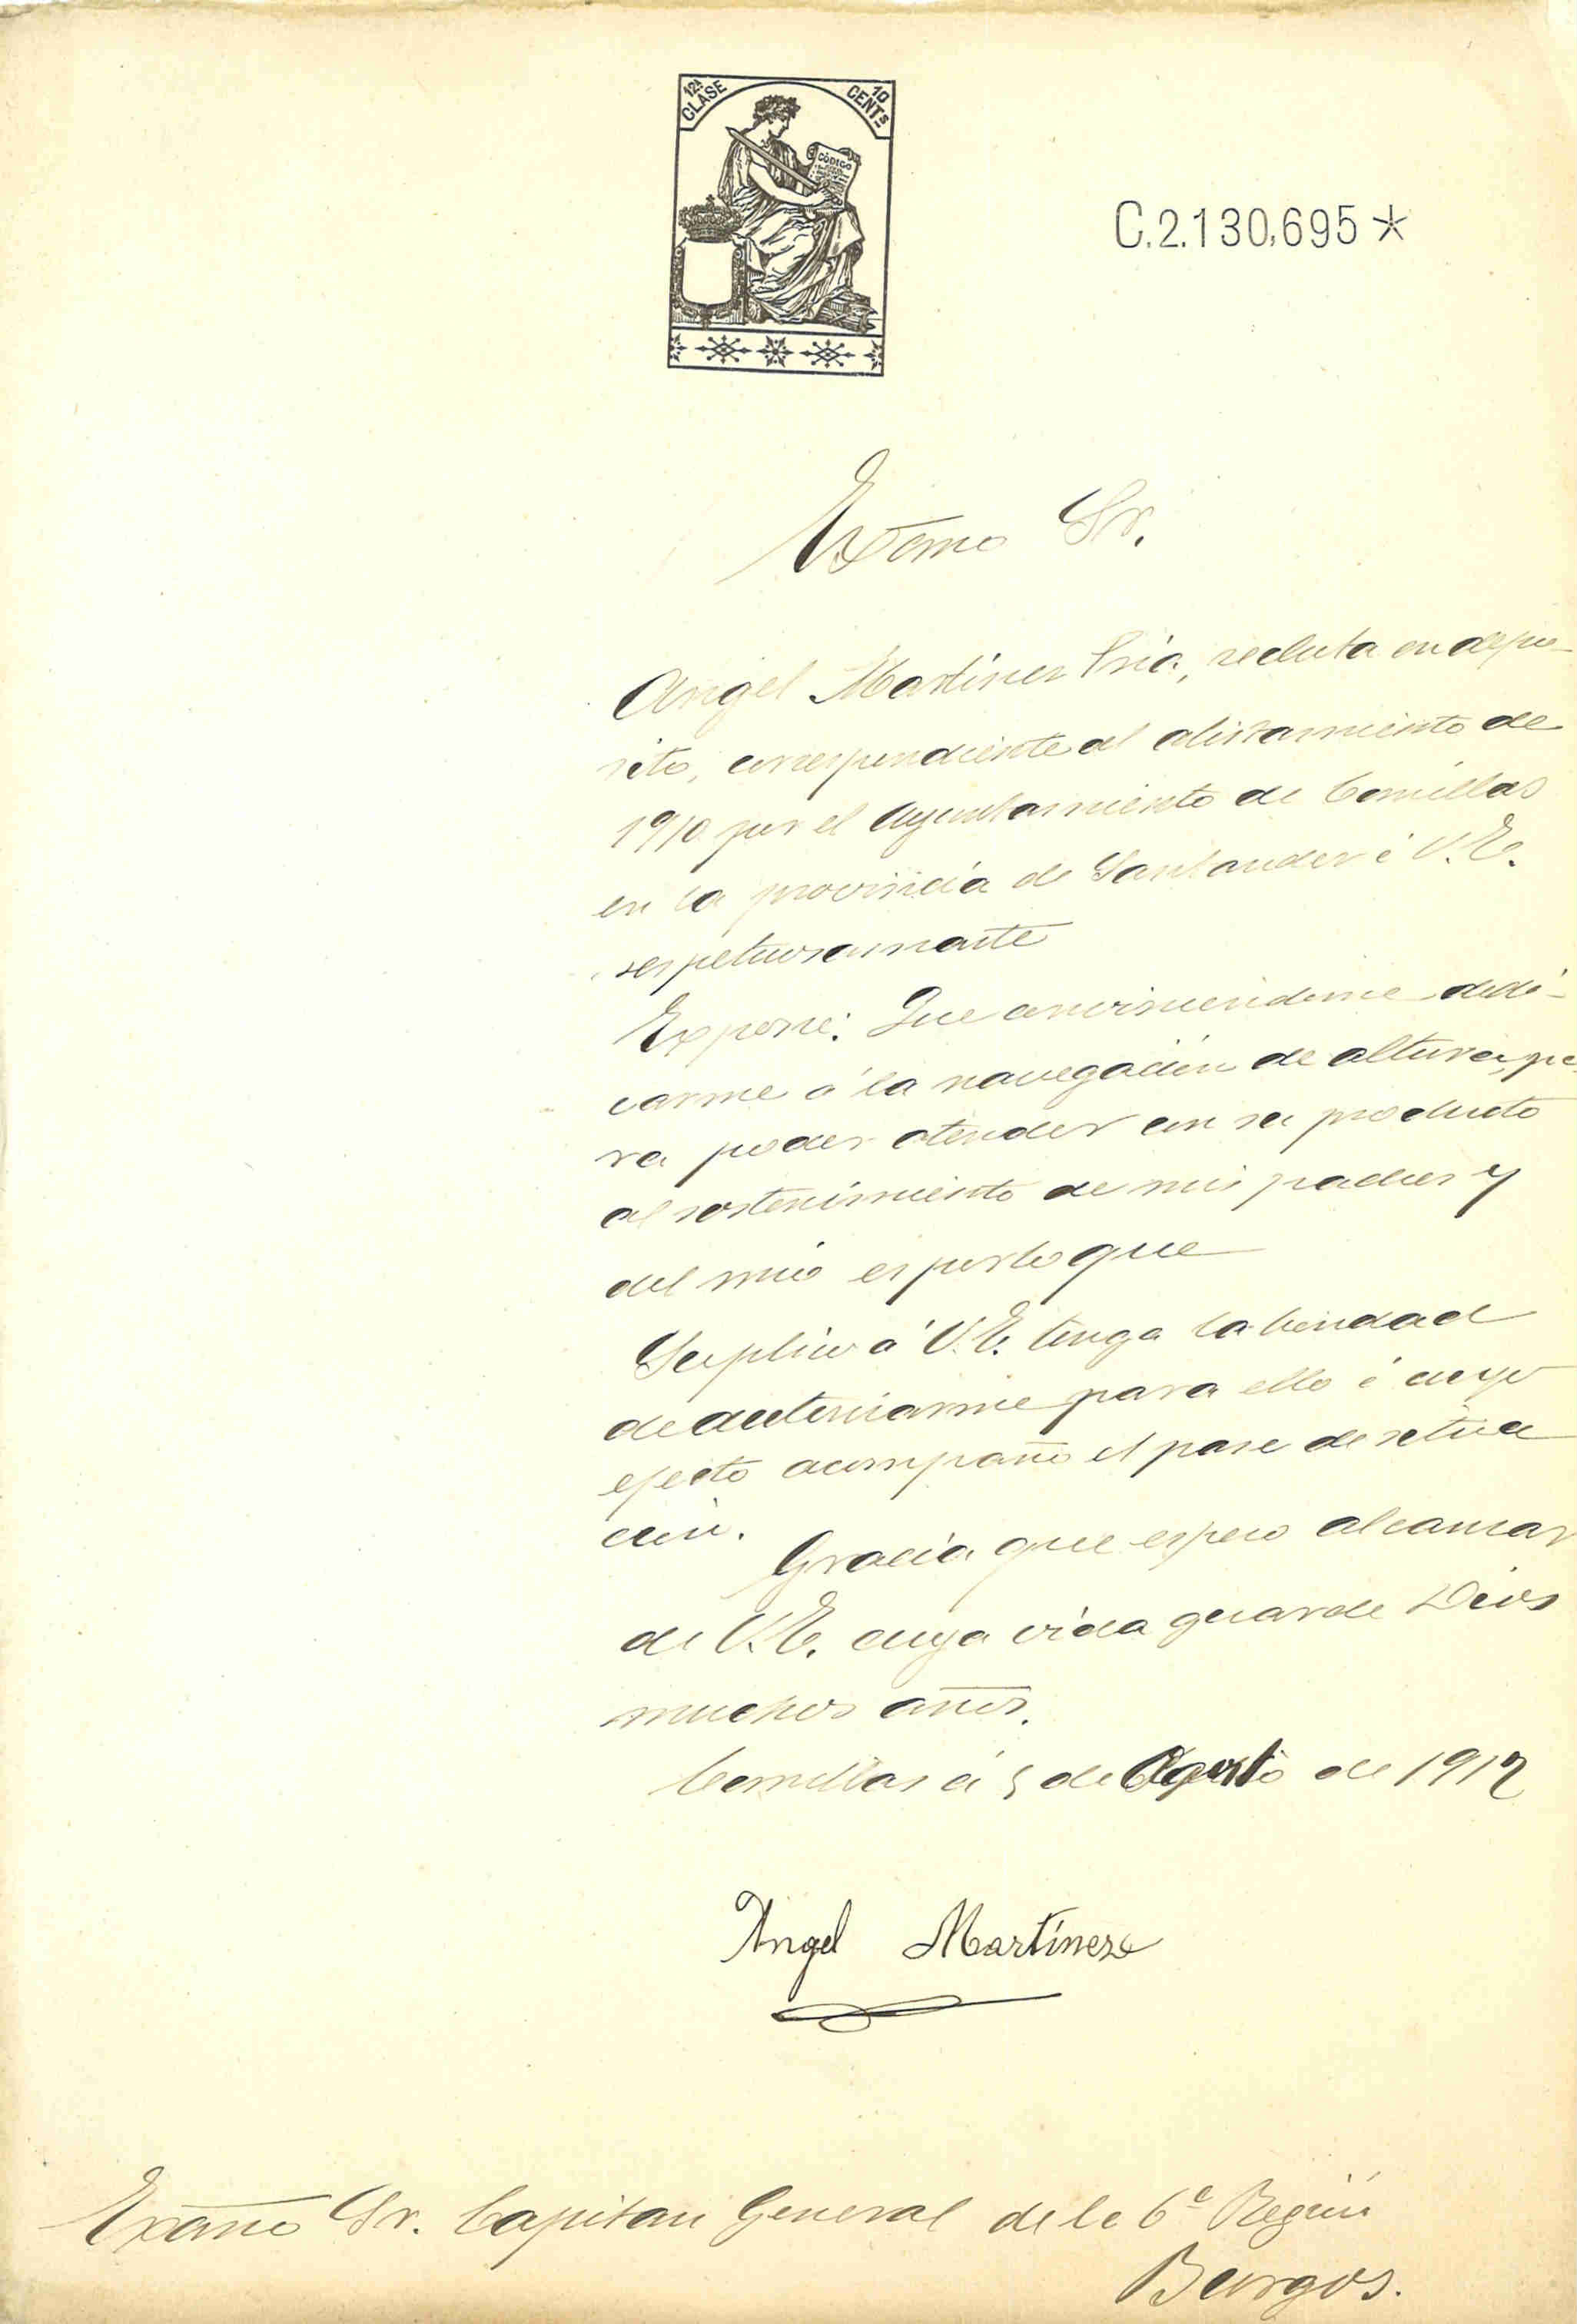 12ª CLASE
10 CENTs
CÓDIGO
C.2.130,695*
Excmo Sr.
Angel Martinez Pria, recluta en depo-
sito, correspondiente al alistamiento de
1910 por el Ayuntamiento de Comillas
en la provincia de Santander á V.E.
respetuosamente
Expone: Que conviniendome dedi-
carme á la navegación de altura, pa-
ra poder atender con su producto
al sostenimiento de mis padres y
del mio es por lo que
Suplico á V.E. tenga la bondad
de autorizarme para ello á cuyo
efecto acompaño el pase de situa
ción.
Gracia que espero alcanzar
de V.E. cuya vida guarde Dios
muchos años.
Comillas á 5 de Agosto de 1912
Angel Martínez
Excmo Sr. Capitan General de la 6ª Región
Burgos.